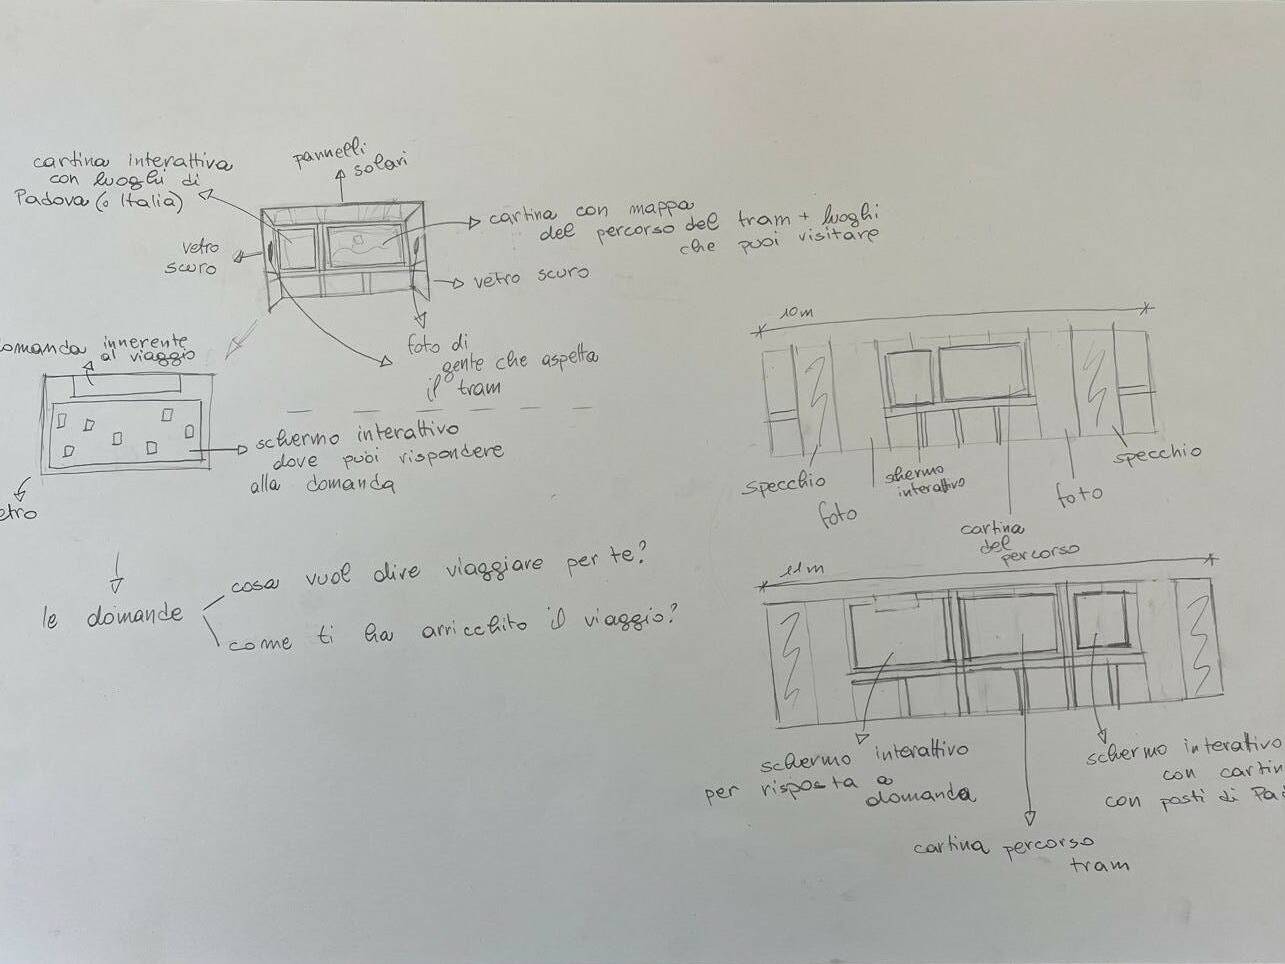 cartina interattiva
con luoghi di
Padova (o Italia)
pannelli
solari
cartina con mappa
del percorso del tram + luoghi
che puoi visitare
vetro
scuro
vetro scuro
foto di
gente che aspetta
il tram
domanda innerente
al viaggio
schermo interattivo
dove puoi rispondere
alla domanda
etro
le domande
cosa vuol dire viaggiare per te?
come ti ha arricchito il viaggio?
10m
specchio
foto
schermo
interattivo
cartina
del
percorso
foto
specchio
11m
schermo interattivo
per risposta a
domanda
cartina percorso
tram
schermo interativo
con cartin
con posti di Pad